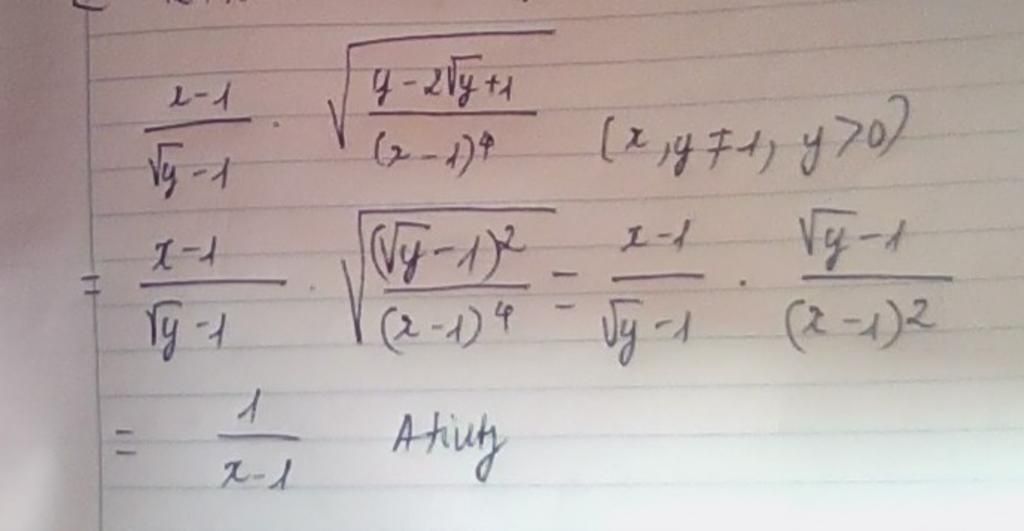 \frac{x-1}{\sqrt{y}-1} \cdot \sqrt{\frac{y-2\sqrt{y}+1}{(x-1)^4}} (x, y ≠ 1, y > 0)
= \frac{x-1}{\sqrt{y}-1} \cdot \sqrt{\frac{(\sqrt{y}-1)^2}{(x-1)^4}} = \frac{x-1}{\sqrt{y}-1} \cdot \frac{\sqrt{y}-1}{(x-1)^2}
= \frac{1}{x-1}